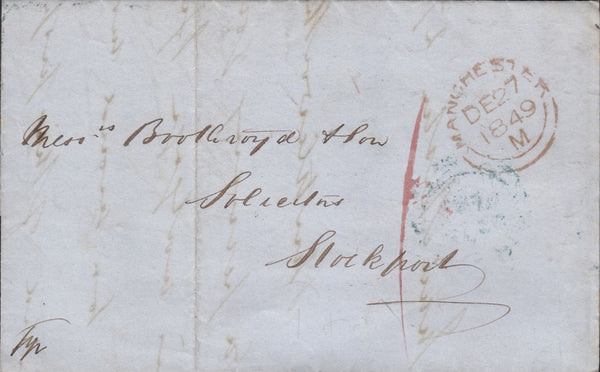 MANCHESTER
DE 27
1849
M
Mess.rs Boothroyd & Son
Solicitors
Stockport